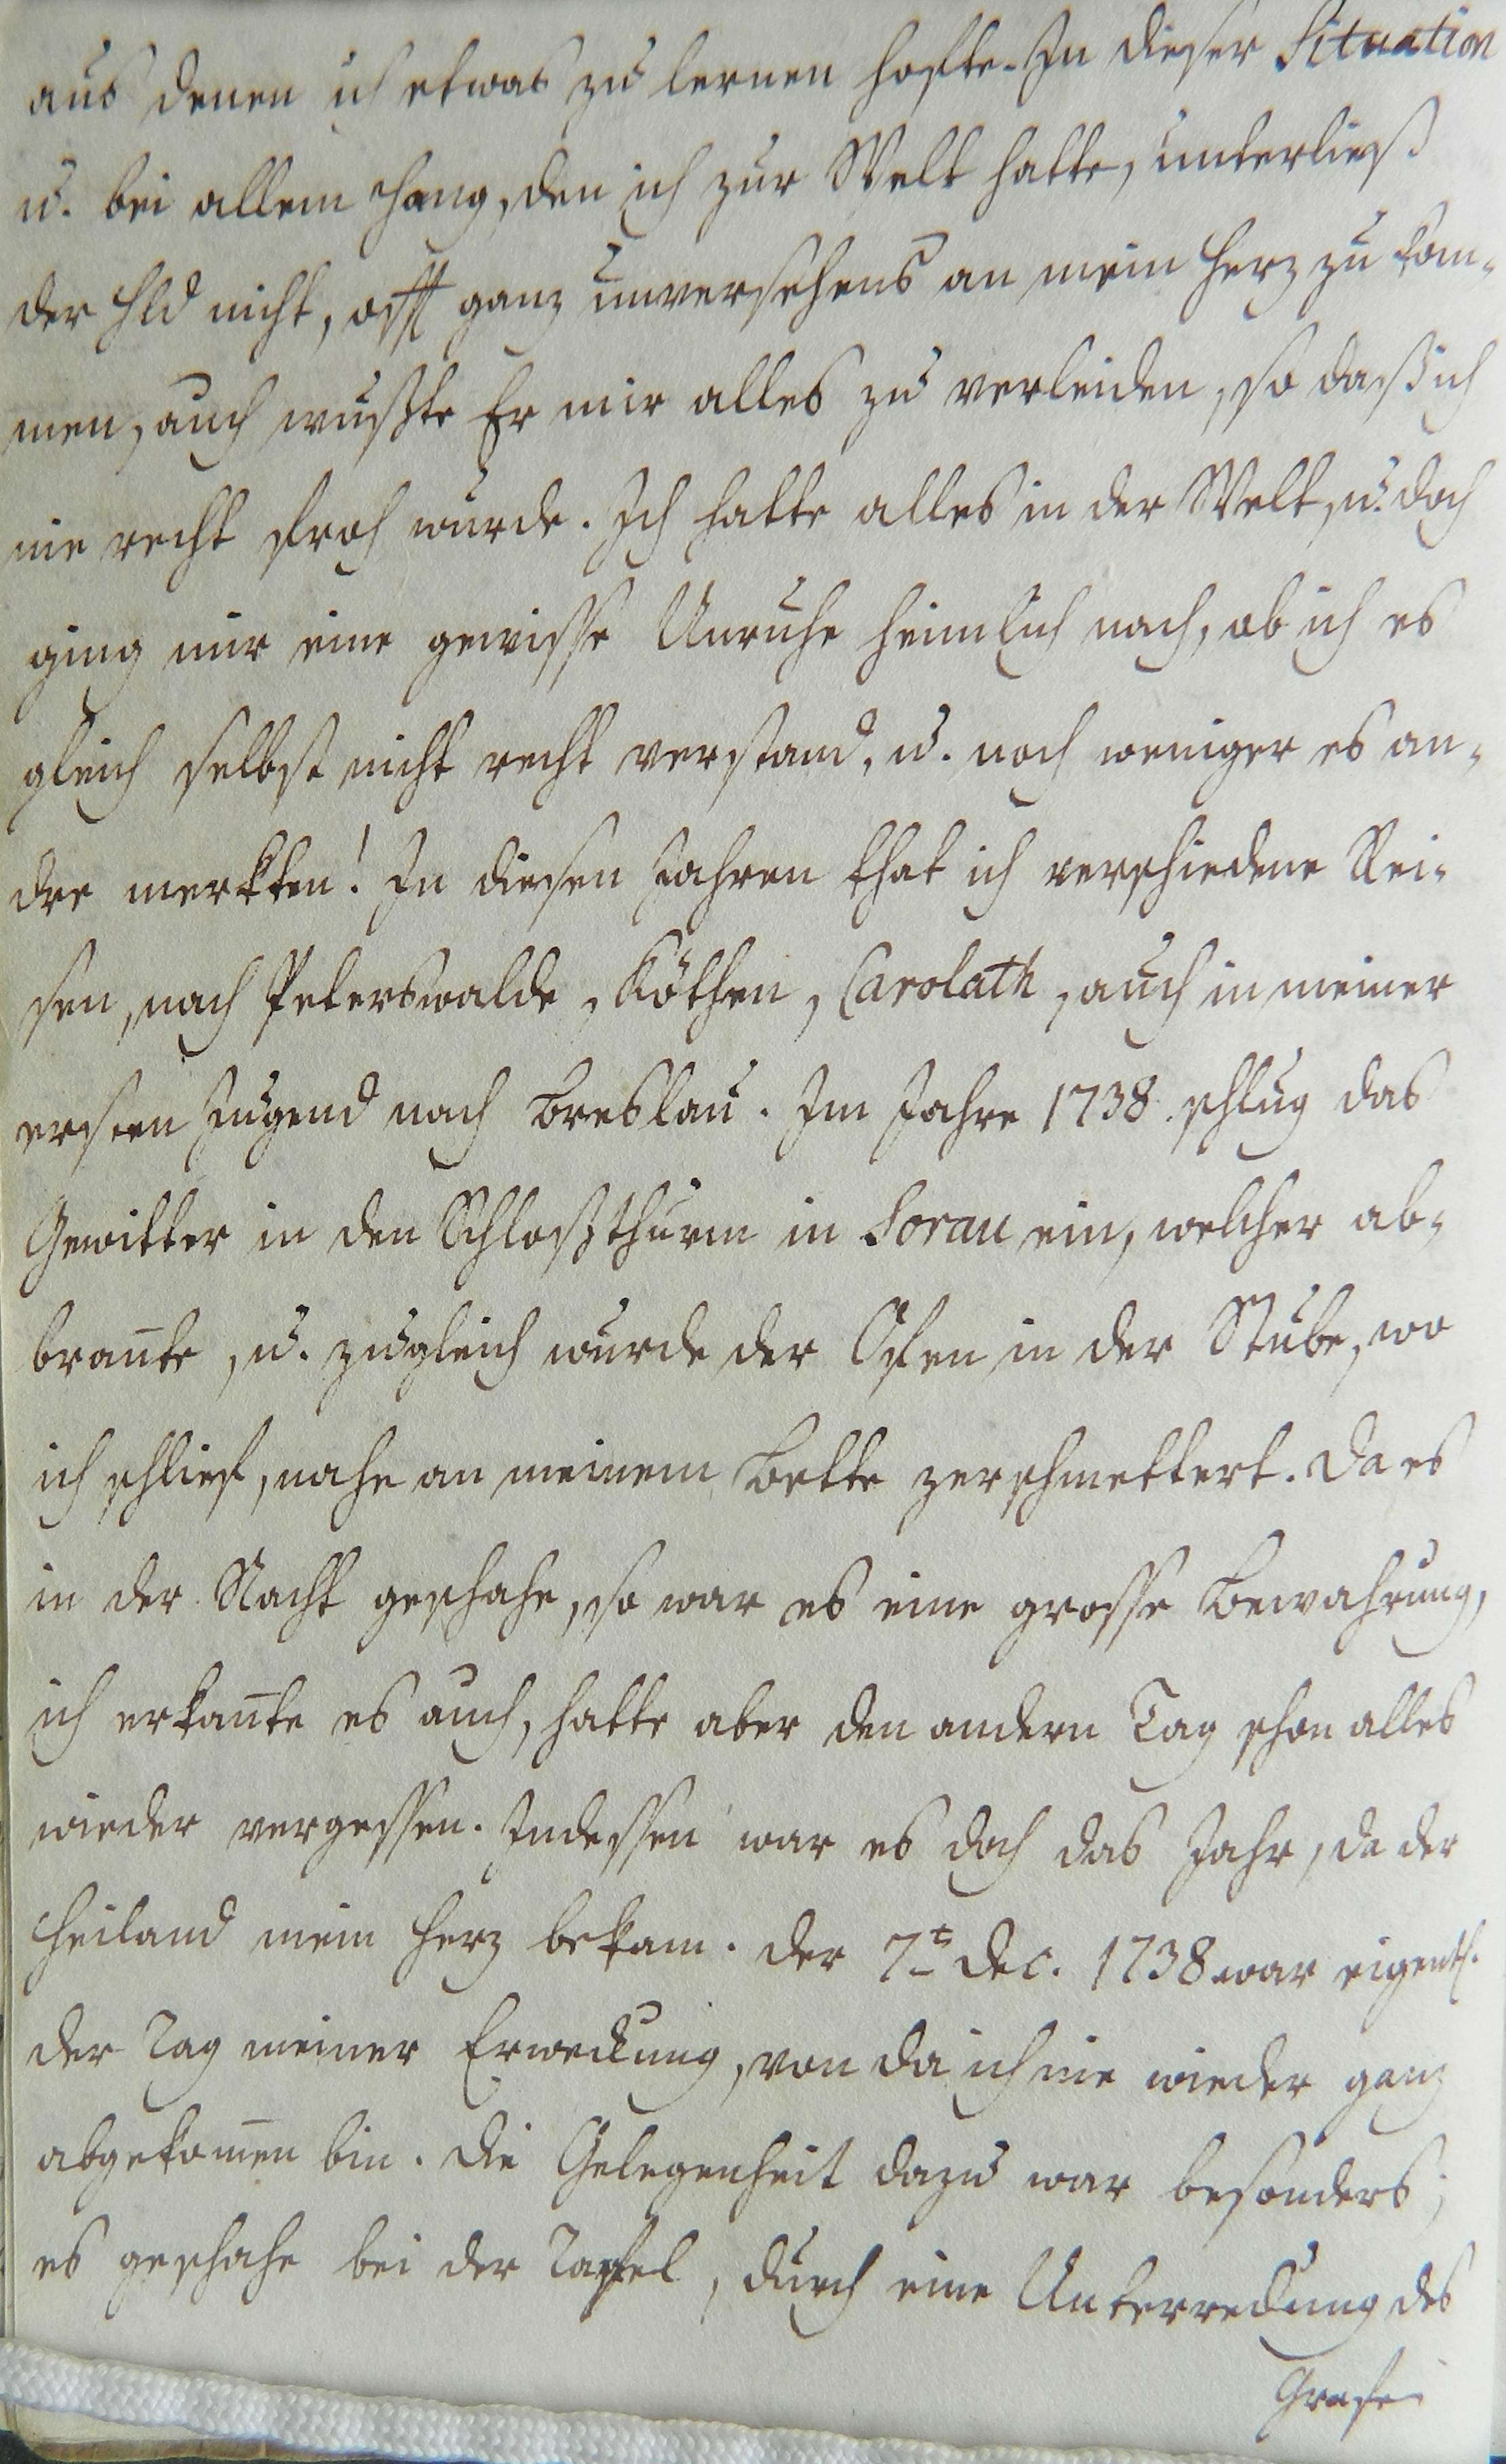 aus denen ich etwas zu lernen hofte. In dieser Situation
u. bei allem Hang, den ich zur Welt hatte, unterließ
der Hld nicht, offt ganz unversehens an mein Herz zu kom-
men, auch wußte Er mir alles zu verleiden, so daß ich
nie recht froh wurde. Ich hatte alles in der Welt, u. doch
ging mir eine gewisse Unruhe heimlich nach, ob ich es
gleich selbst nicht recht verstand, u. noch weniger es an-
dre merkten! In diesen Jahren that ich verschiedene Rei-
sen, nach Peterswalde, Köthen, Carolath, auch in meiner
ersten Jugend nach Breslau. Im Jahre 1738. schlug das
Gewitter in den Schloßthurm in Sorau ein, welcher ab-
bran̄te, u. zugleich wurde der Ofen in der Stube, wo
ich schlief, nahe an meinem Bette zerschmettert. Da es
in der Nacht geschahe, so war es eine grosse Bewahrung,
ich erkan̄te es auch, hatte aber den andern Tag schon alles
wieder vergessen. Indessen war es doch das Jahr, da der
Heiland mein Herz bekam. Der 7t Dec. 1738. war eigentl.
der Tag meiner Erweckung, von da ich nie wieder ganz
abgekom̄en bin. Die Gelegenheit dazu war besonders;
es geschahe bei der Tafel, durch eine Unterredung des
Grafen